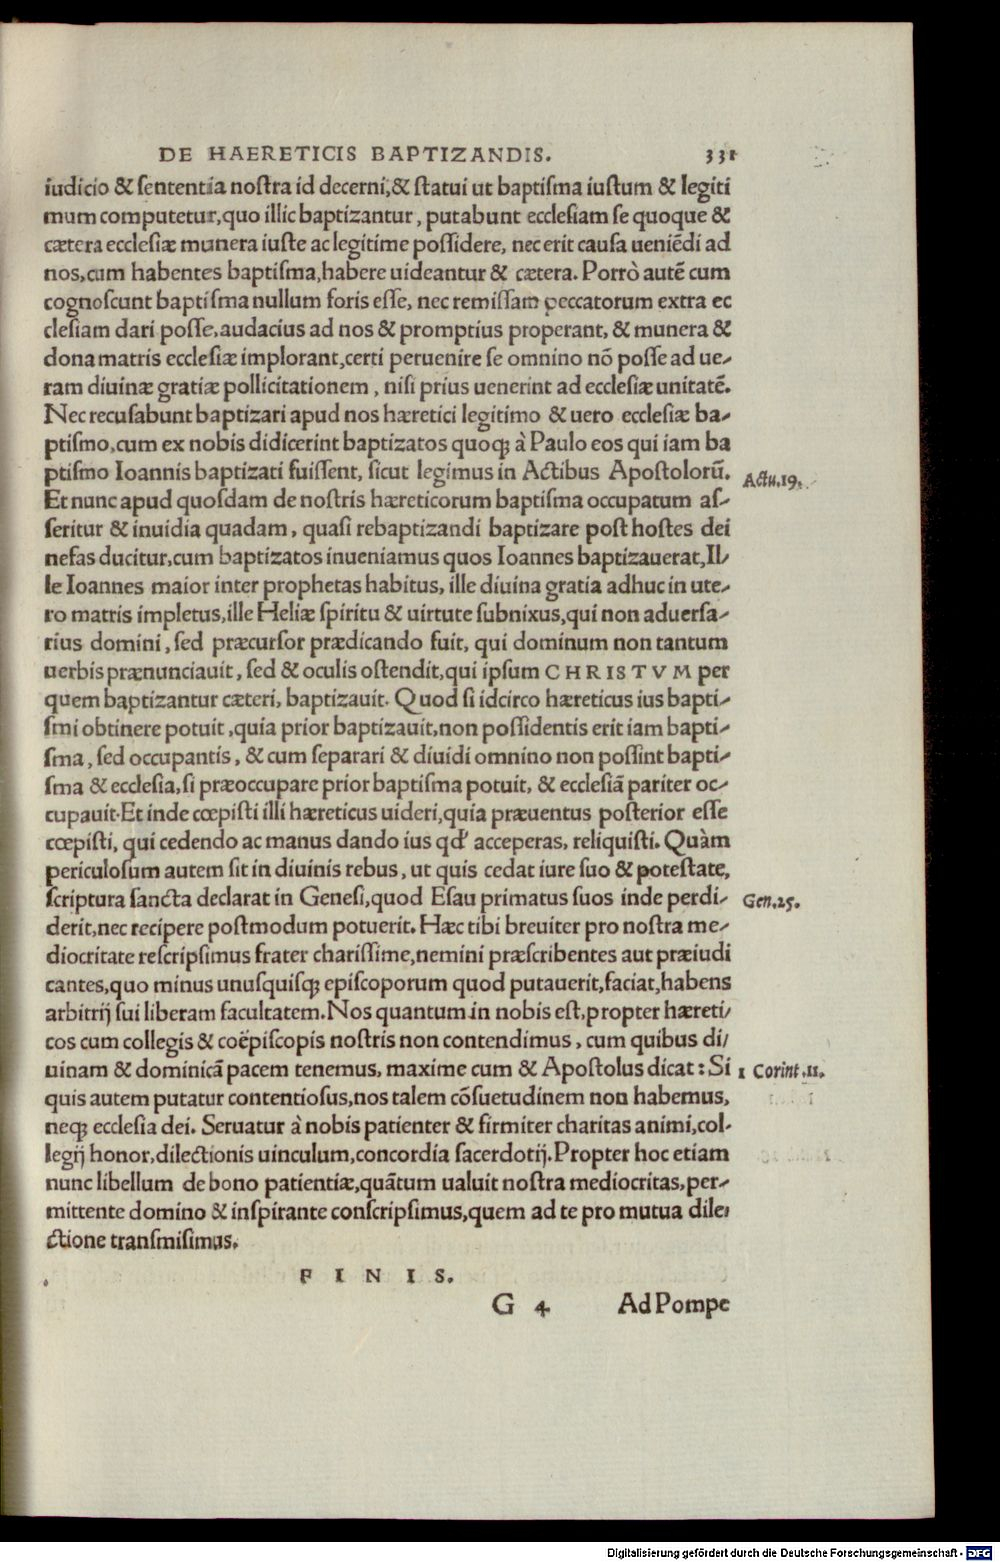 DE HAERETICIS BAPTIZANDIS. 331
iudicio & sententia nostra id decerni,& statui ut baptisma iustum & legiti
mum computetur,quo illic baptizantur, putabunt ecclesiam se quoque &
cætera ecclesiæ munera iuste ac legitime possidere, nec erit causa ueniēdi ad
nos,cum habentes baptisma,habere uideantur & cætera. Porrò autē cum
cognoscunt baptisma nullum foris esse, nec remissam peccatorum extra ec
clesiam dari posse,audacius ad nos & promptius properant, & munera &
dona matris ecclesiæ implorant,certi peruenire se omnino nō posse ad ue-
ram diuinæ gratiæ pollicitationem, nisi prius uenerint ad ecclesiæ unitatē.
Nec recusabunt baptizari apud nos hæretici legitimo & uero ecclesiæ ba-
ptismo,cum ex nobis didicerint baptizatos quoq; à Paulo eos qui iam ba
ptismo Ioannis baptizati fuissent, sicut legimus in Actibus Apostolorū. Actu.19.
Et nunc apud quosdam de nostris hæreticorum baptisma occupatum as-
seritur & inuidia quadam, quasi rebaptizandi baptizare post hostes dei
nefas ducitur,cum baptizatos inueniamus quos Ioannes baptizauerat,Il-
le Ioannes maior inter prophetas habitus, ille diuina gratia adhuc in ute-
ro matris impletus,ille Heliæ spiritu & uirtute subnixus,qui non aduersa-
rius domini, sed præcursor prædicando fuit, qui dominum non tantum
uerbis prænunciauit, sed & oculis ostendit,qui ipsum CHRISTVM per
quem baptizantur cæteri, baptizauit. Quod si idcirco hæreticus ius bapti-
smi obtinere potuit,quia prior baptizauit,non possidentis erit iam bapti-
sma, sed occupantis, & cum separari & diuidi omnino non possint bapti-
sma & ecclesia,si præoccupare prior baptisma potuit, & ecclesiā pariter oc-
cupauit.Et inde cœpisti illi hæreticus uideri,quia præuentus posterior esse
cœpisti, qui cedendo ac manus dando ius qd' acceperas, reliquisti. Quàm
periculosum autem sit in diuinis rebus, ut quis cedat iure suo & potestate,
scriptura sancta declarat in Genesi,quod Esau primatus suos inde perdi- Gen.25.
derit,nec recipere postmodum potuerit. Hæc tibi breuiter pro nostra me-
diocritate rescripsimus frater charissime,nemini præscribentes aut præiudi
cantes,quo minus unusquisq; episcoporum quod putauerit,faciat,habens
arbitrij sui liberam facultatem.Nos quantum in nobis est,propter hæreti-
cos cum collegis & coëpiscopis nostris non contendimus, cum quibus di-
uinam & dominicā pacem tenemus, maxime cum & Apostolus dicat: Si 1 Corint.11.
quis autem putatur contentiosus,nos talem cōsuetudinem non habemus,
neq; ecclesia dei. Seruatur à nobis patienter & firmiter charitas animi,col-
legij honor,dilectionis uinculum,concordia sacerdotij.Propter hoc etiam
nunc libellum de bono patientiæ,quātum ualuit nostra mediocritas,per-
mittente domino & inspirante conscripsimus,quem ad te pro mutua dile-
ctione transmisimus.
FINIS.
G 4 Ad Pompe
Digitalisierung gefördert durch die Deutsche Forschungsgemeinschaft - DFG